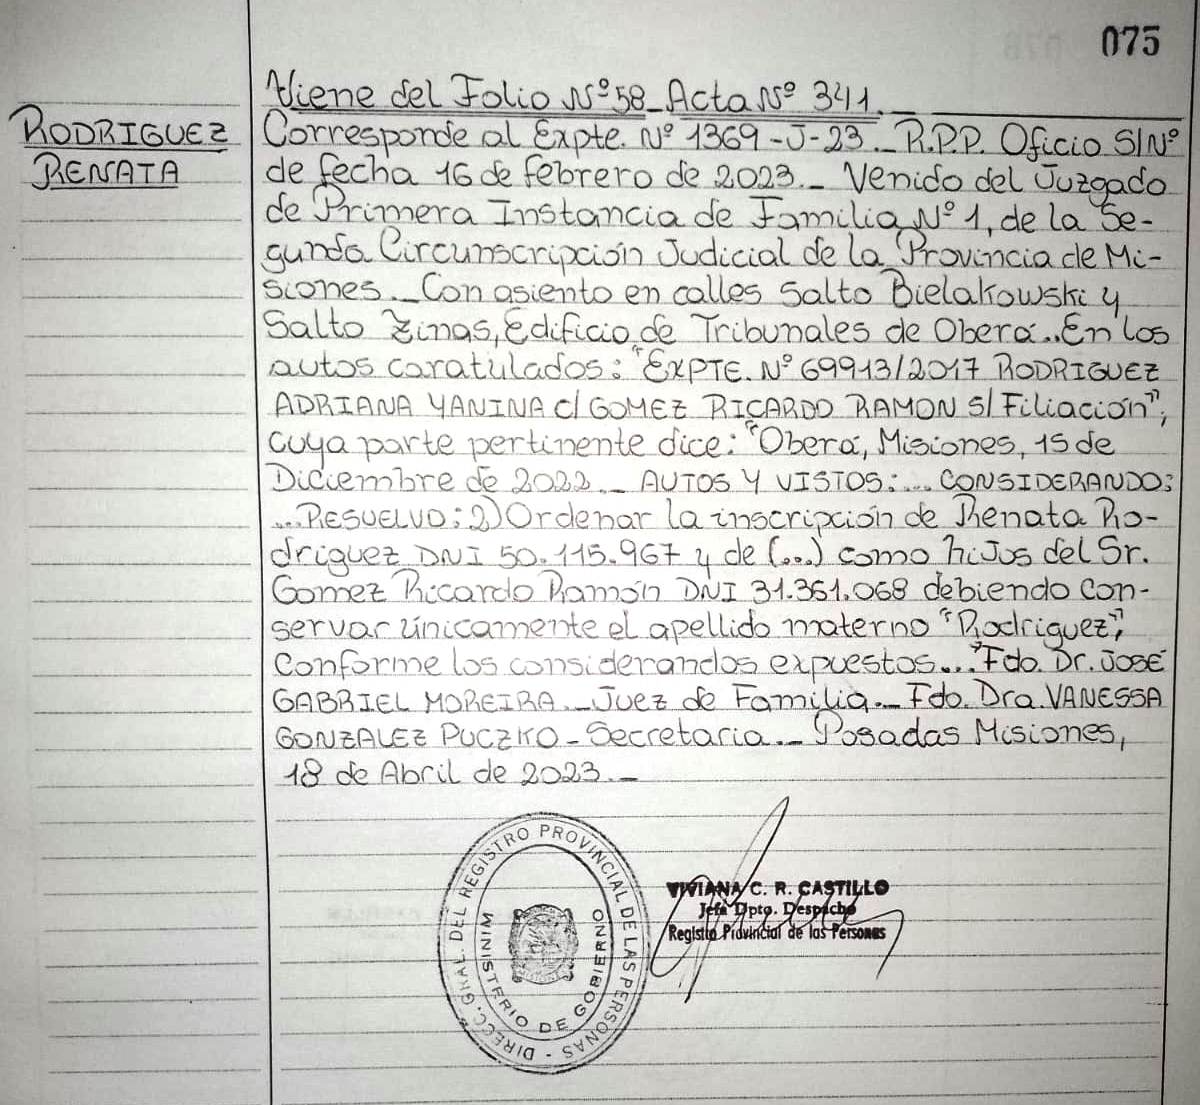 075
RODRIGUEZ
RENATA
Viene del Folio Nº 58_Acta Nº 341._
Corresponde al Expte. Nº 1369-J-23._ R.P.P. Oficio S/Nº
de fecha 16 de febrero de 2023._ Venido del Juzgado
de Primera Instancia de Familia Nº 1, de la Se-
gunda Circunscripción Judicial de la Provincia de Mi-
siones._ Con asiento en calles Salto Bielakowski y
Salto Zinas, Edificio de Tribunales de Oberá.. En los
autos caratulados: "EXPTE. Nº 69913/2017 RODRIGUEZ
ADRIANA YANINA C/ GOMEZ RICARDO RAMON S/ Filiación",
cuya parte pertinente dice: "Oberá, Misiones, 15 de
Diciembre de 2022._ AUTOS Y VISTOS:... CONSIDERANDO:
...RESUELVO: 2) Ordenar la inscripción de Renata Ro-
driguez DNI 50.115.967 y de (...) como hijos del Sr.
Gomez Ricardo Ramón DNI 31.361.068 debiendo con-
servar únicamente el apellido materno "Rodriguez",
conforme los considerandos expuestos..." Fdo. Dr. JOSÉ
GABRIEL MOREIRA._ Juez de Familia._ Fdo. Dra. VANESSA
GONZALEZ PUCZKO_Secretaria._ Posadas Misiones,
18 de Abril de 2023._
DIRECC. GRAL DEL REGISTRO PROVINCIAL DE LAS PERSONAS -
MINISTERIO DE GOBIERNO
VIVIANA C. R. CASTILLO
Jefa Dpto. Despacho
Registro Provincial de las Personas